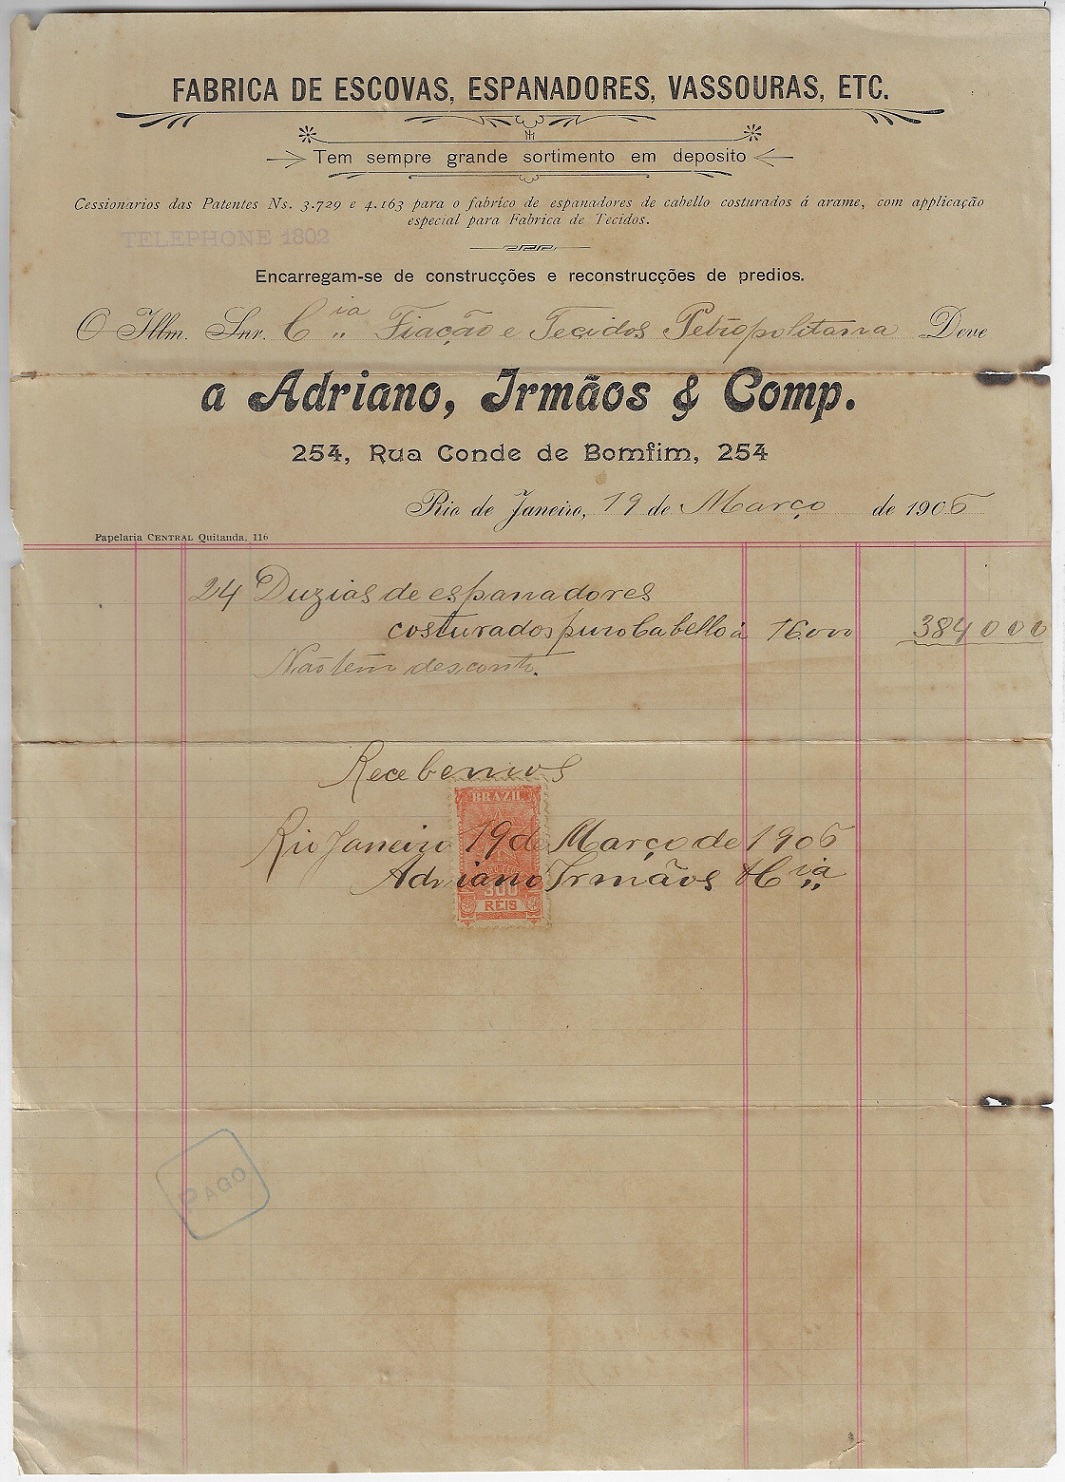 FABRICA DE ESCOVAS, ESPANADORES, VASSOURAS, ETC.
Tem sempre grande sortimento em deposito
Cessionarios das Patentes Ns. 3.729 e 4.163 para o fabrico de espanadores de cabello costurados á arame, com applicação
especial para Fabrica de Tecidos.
TELEPHONE 1802
Encarregam-se de construcções e reconstrucções de predios.
O Illm. Snr. Cia Fiação e Tecidos Petropolitana Deve
a Adriano, Irmãos & Comp.
254, Rua Conde de Bomfim, 254
Rio de Janeiro, 19 de Março de 1906
Papelaria CENTRAL Quitanda, 116
24 Duzias de espanadores
costurados puro Cabello á 16.000 384000
Não tem desconto.
Recebemos
BRAZIL
Rio Janeiro 19 de Março de 1906
Adriano Irmãos & Cia
300
REIS
PAGO